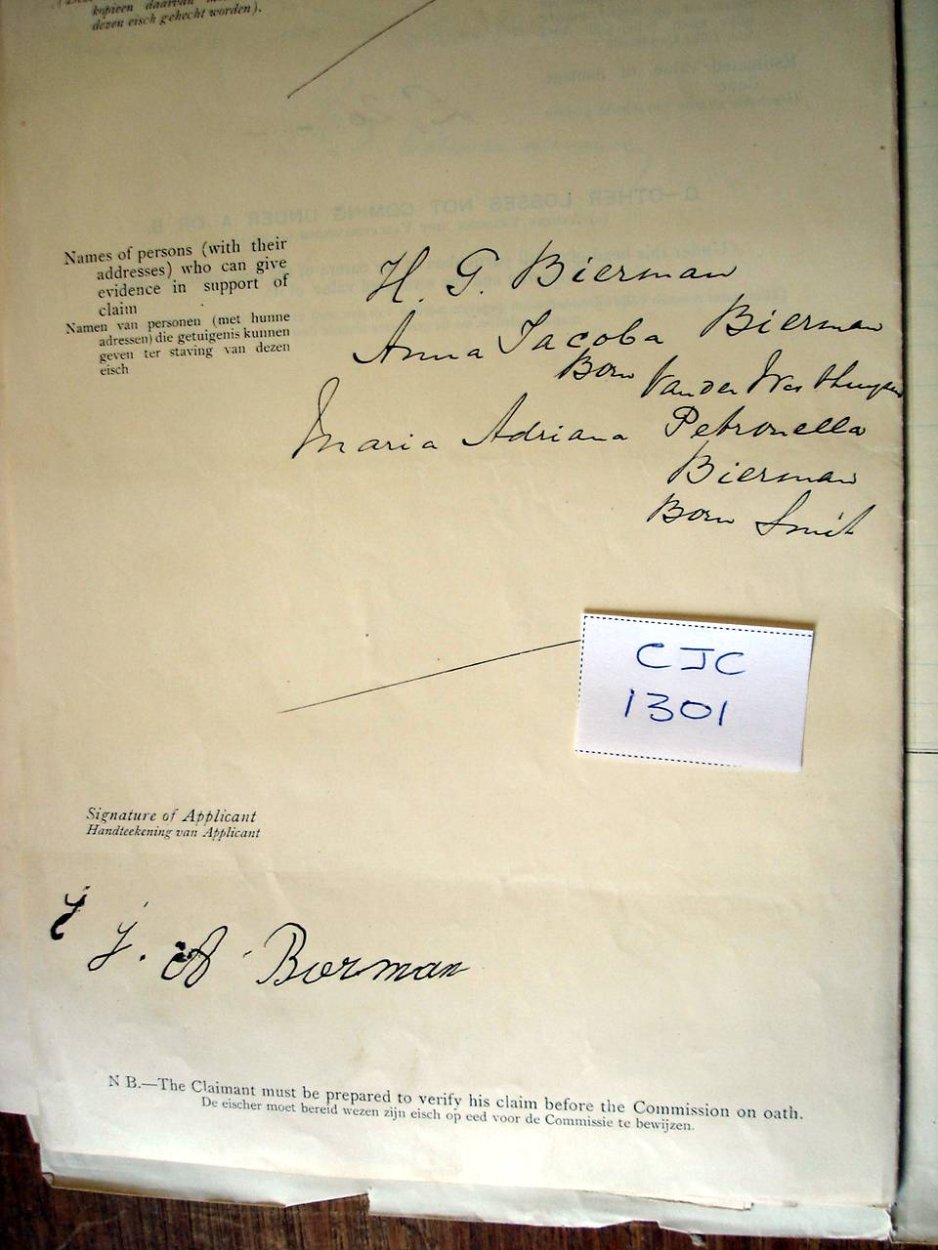 kopieen daarvan
dezen eisch gehecht worden).
Names of persons (with their
addresses) who can give
evidence in support of
claim
Namen van personen (met hunne
adressen) die getuigenis kunnen
geven ter staving van dezen
eisch
H. G. Bierman
Anna Jacoba Bierman
Born Van der Westhuyzen
Maria Adriana Petronella
Bierman
Born Smit
CJC
1301
Signature of Applicant
Handteekening van Applicant
J. A Bierman
N B.—The Claimant must be prepared to verify his claim before the Commission on oath.
De eischer moet bereid wezen zijn eisch op eed voor de Commissie te bewijzen.